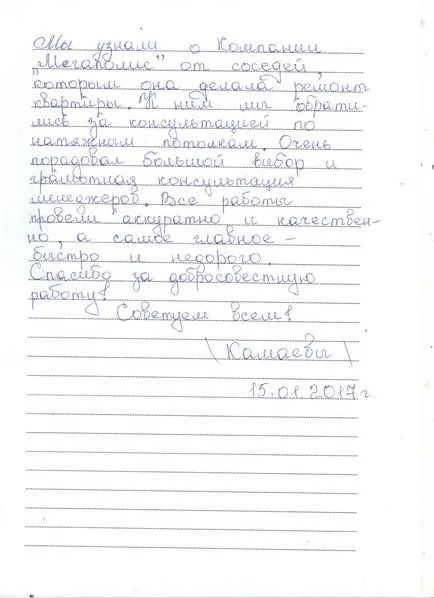 Мы узнали о Компании
"Мегаполис" от соседей,
которым она делала ремонт
квартиры. К ним мы обрати-
лись за консультацией по
натяжным потолкам. Очень
порадовал большой выбор и
грамотная консультация
менеджеров. Все работы
провели аккуратно и качествен-
но, а самое главное –
быстро и недорого.
Спасибо за добросовестную
работу!
Советуем всем!
\ Камаевы \
15.01.2017г.